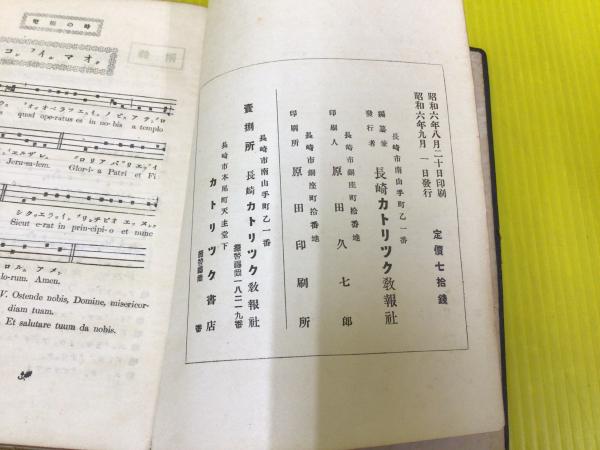 時の樹聖
コンフィマオ
quod ope-ratus es in no-bis a templo
Jeru-sa-lem. Glori-a Patri et Fi
Sicut e-rat in prin-cipi-o et nunc
lo-rum. Amen.
V. Ostende nobis, Domine, misericor-
diam tuam.
Et salutare tuum da nobis.
昭和六年八月二十日印刷
昭和六年九月一日發行
定價七拾錢
長崎市南山手町乙一番
編纂兼發行者 長崎カトリツク教報社
長崎市銅座町拾番地
印刷人 原田久七郎
長崎市銅座町拾番地
印刷所 原田印刷所
長崎市南山手町乙一番
賣捌所 長崎カトリツク教報社
振替福岡一八二一九番
長崎市本尾町天主堂下
カトリツク書店
振替福岡 番